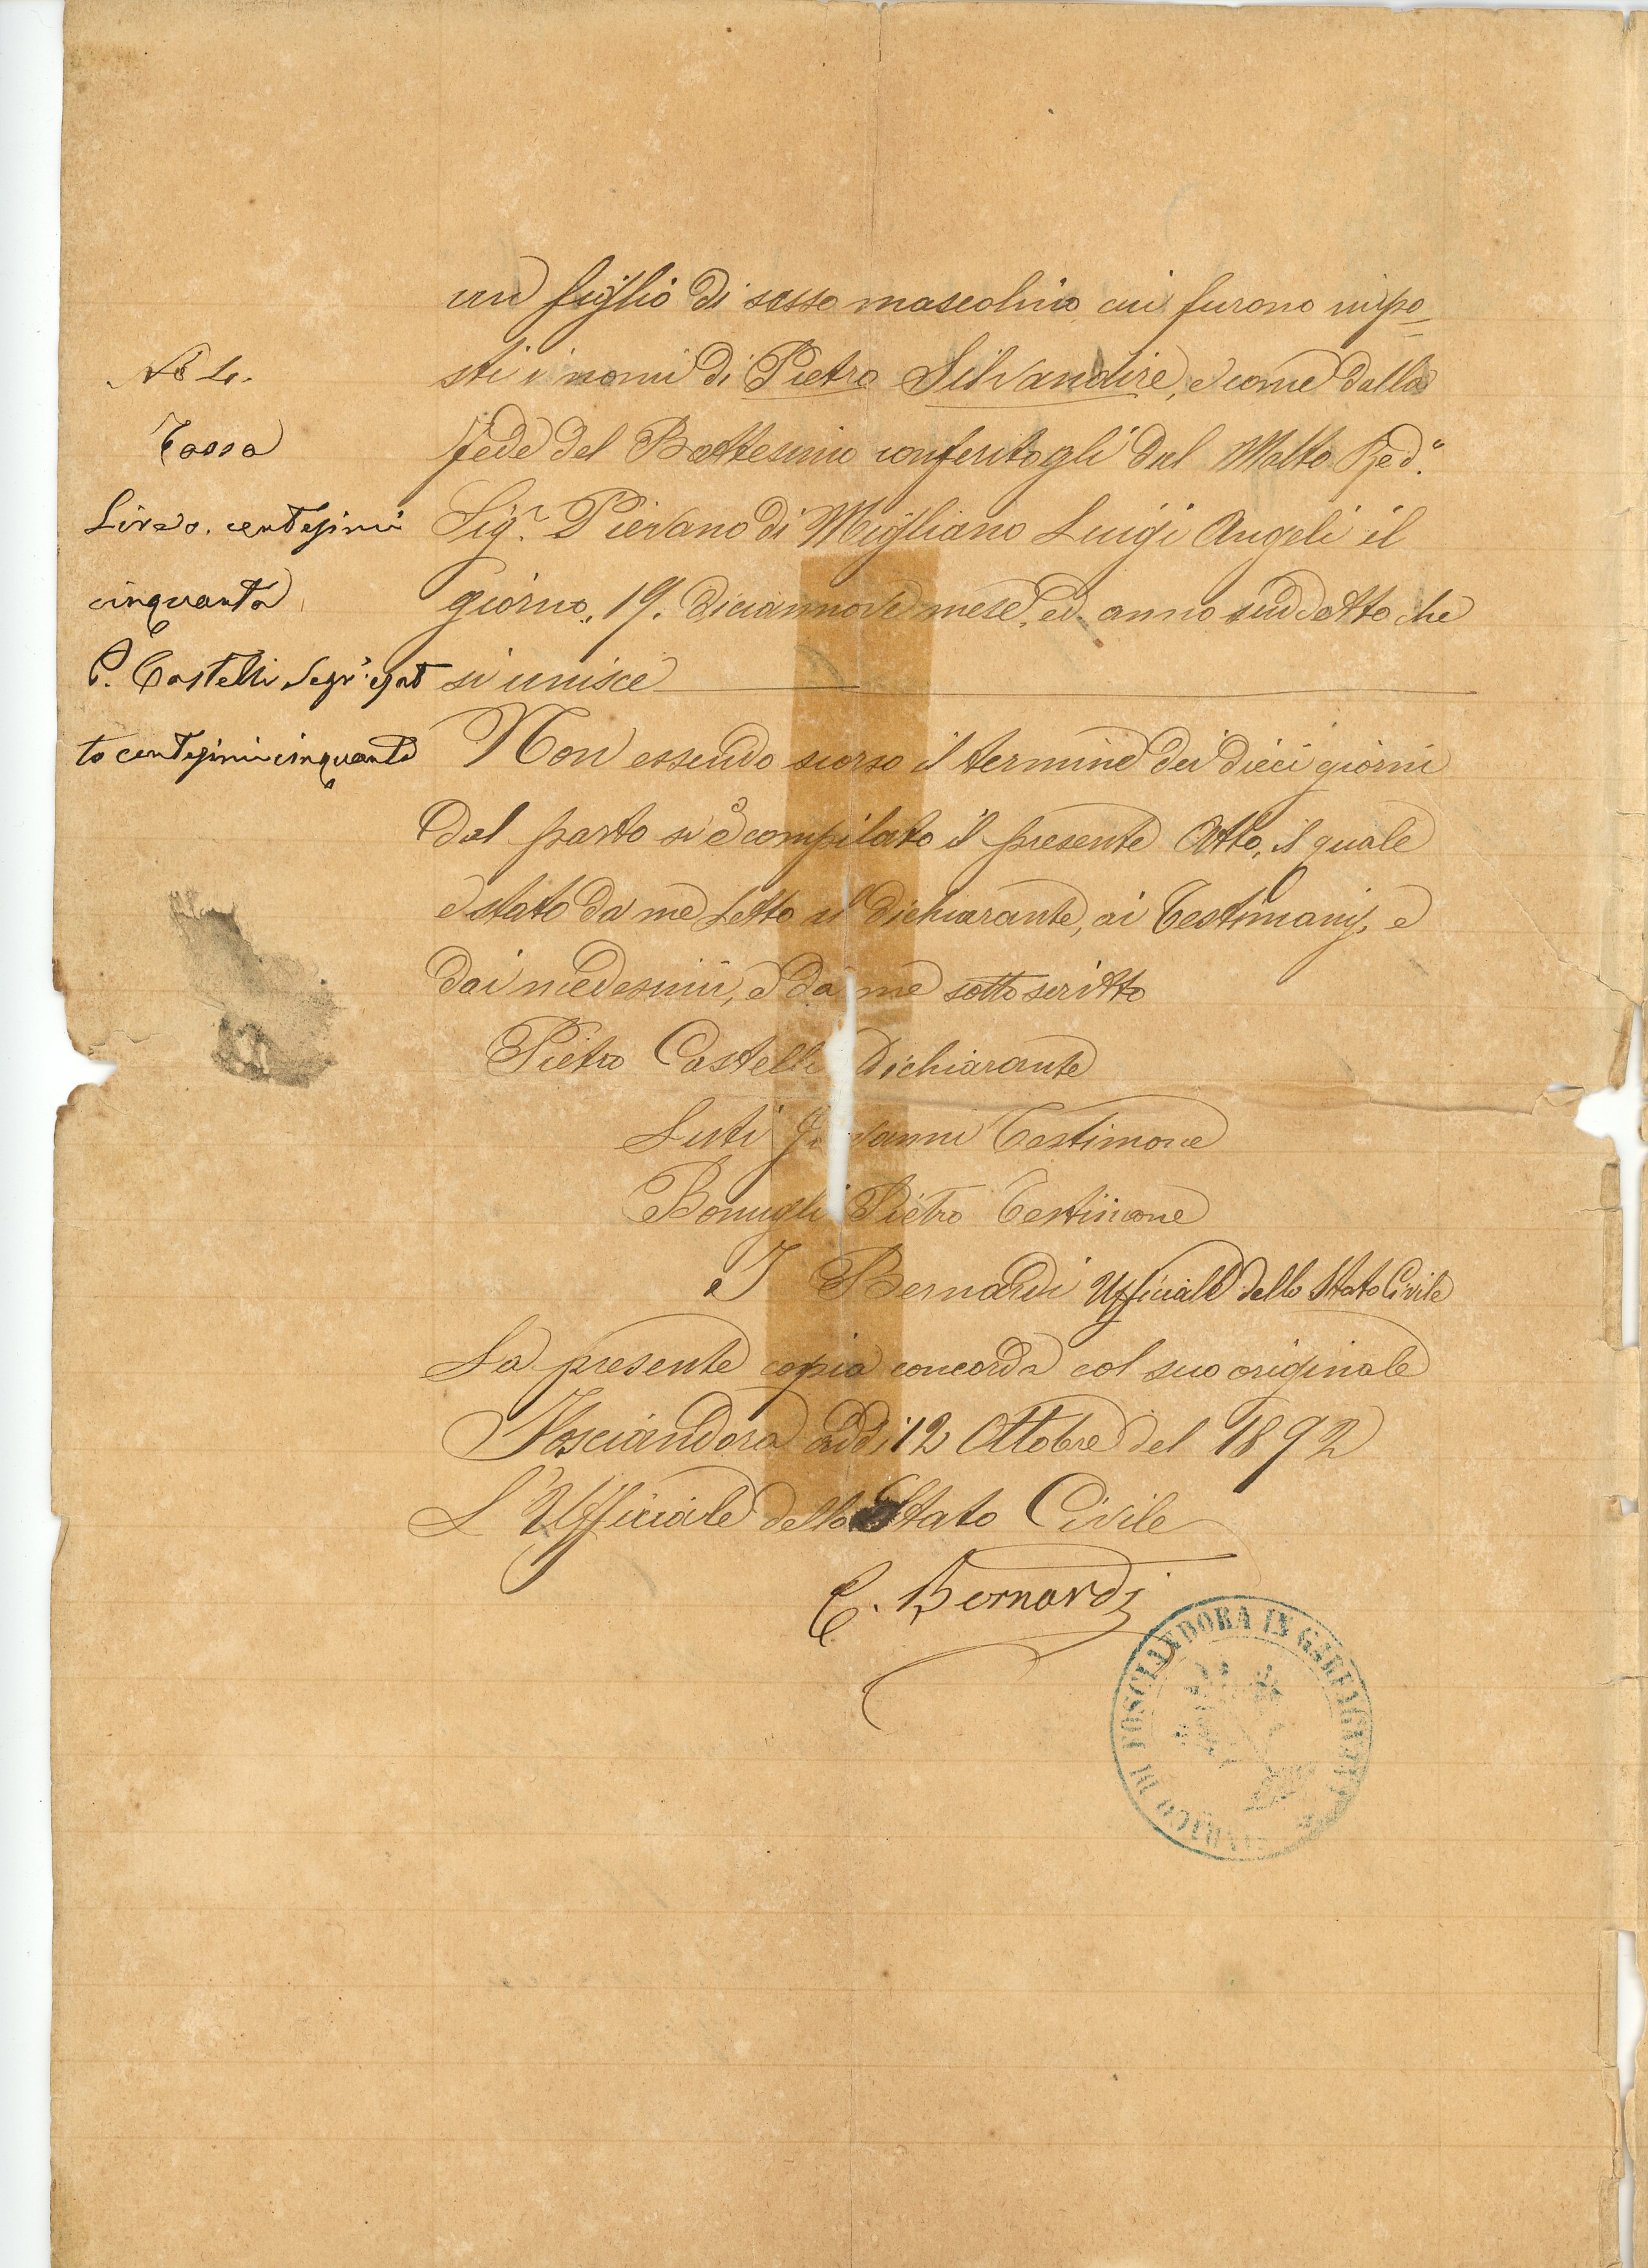 un figlio di sesso mascolino cui furono impo=
sti i nomi di Pietro Silvandire, e come dalla
fede del Battesimo conferitogli dal Molto Red.º
Sig.r Pievano di Migliano Luigi Angeli il
giorno 19. diciannove mese, ed anno suddetto che
si unisce
Non essendo scorso il termine dei dieci giorni
dal parto si è compilato il presente Atto, il quale
è stato da me letto al dichiarante, ai Testimonj, e
dai medesimi, e da me sottoscritto
Pietro Castelli Dichiarante
Lusti Giovanni Testimone
Bonugli Pietro Testimone
Bernardi Ufficiale dello Stato Civile
La presente copia concorda col suo originale
Fosciandora addì 12 Ottobre del 1892
L'Ufficiale dello Stato Civile
C. Bernardi
Nº 4.
Tassa
Lire 0. centesimi
cinquanta
P. Castelli Segr.º
centesimi cinquanta
DI FOSCIANDORA IN GARFAGNANA